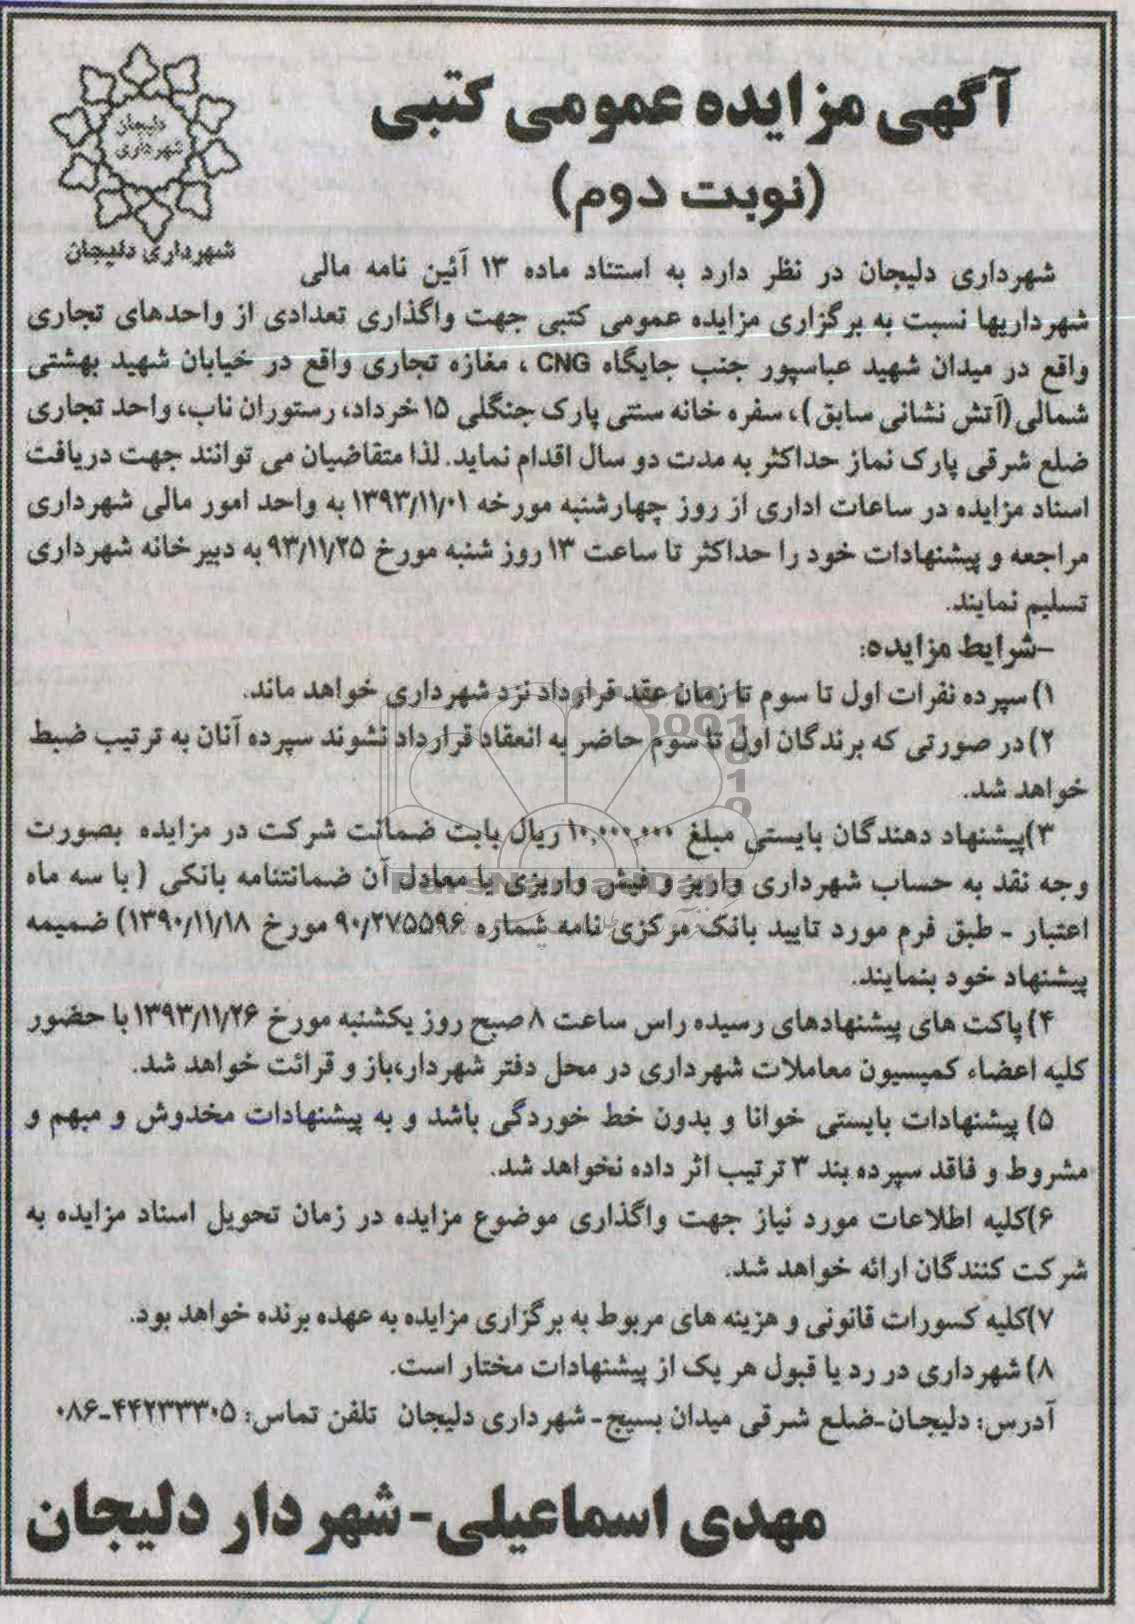 آگهی مزایده عمومی کتبی
(نوبت دوم)
دلیجان
شهرداری
شهرداری دلیجان
شهرداری دلیجان در نظر دارد به استناد ماده ۱۳ آئین نامه مالی
شهرداریها نسبت به برگزاری مزایده عمومی کتبی جهت واگذاری تعدادی از واحدهای تجاری
واقع در میدان شهید عباسپور جنب جایگاه CNG ، مغازه تجاری واقع در خیابان شهید بهشتی
شمالی (آتش نشانی سابق)، سفره خانه سنتی پارک جنگلی ۱۵ خرداد، رستوران ناب، واحد تجاری
ضلع شرقی پارک نماز حداکثر به مدت دو سال اقدام نماید. لذا متقاضیان می توانند جهت دریافت
اسناد مزایده در ساعات اداری از روز چهارشنبه مورخه ۱۳۹۳/۱۱/۰۱ به واحد امور مالی شهرداری
مراجعه و پیشنهادات خود را حداکثر تا ساعت ۱۳ روز شنبه مورخ ۹۳/۱۱/۲۵ به دبیرخانه شهرداری
تسلیم نمایند.
-شرایط مزایده:
۱) سپرده نفرات اول تا سوم تا زمان عقد قرارداد نزد شهرداری خواهد ماند.
۲) در صورتی که برندگان اول تا سوم حاضر به انعقاد قرارداد نشوند سپرده آنان به ترتیب ضبط
خواهد شد.
۳)پیشنهاد دهندگان بایستی مبلغ ۱۰,۰۰۰,۰۰۰ ریال بابت ضمانت شرکت در مزایده بصورت
وجه نقد به حساب شهرداری واریز و فیش واریزی یا معادل آن ضمانتنامه بانکی ( با سه ماه
اعتبار - طبق فرم مورد تایید بانک مرکزی نامه شماره ۹۰/۲۷۵۵۹۶ مورخ ۱۳۹۰/۱۱/۱۸) ضمیمه
پیشنهاد خود بنمایند.
۴) پاکت های پیشنهادهای رسیده راس ساعت ۸ صبح روز یکشنبه مورخ ۱۳۹۳/۱۱/۲۶ با حضور
کلیه اعضاء کمیسیون معاملات شهرداری در محل دفتر شهردار،باز و قرائت خواهد شد.
۵) پیشنهادات بایستی خوانا و بدون خط خوردگی باشد و به پیشنهادات مخدوش و مبهم و
مشروط و فاقد سپرده بند ۳ ترتیب اثر داده نخواهد شد.
۶)کلیه اطلاعات مورد نیاز جهت واگذاری موضوع مزایده در زمان تحویل اسناد مزایده به
شرکت کنندگان ارائه خواهد شد.
۷)کلیه کسورات قانونی و هزینه های مربوط به برگزاری مزایده به عهده برنده خواهد بود.
۸) شهرداری در رد یا قبول هر یک از پیشنهادات مختار است.
آدرس: دلیجان-ضلع شرقی میدان بسیج- شهرداری دلیجان تلفن تماس: ۴۴۲۳۳۳۰۵-۰۸۶
مهدی اسماعیلی-شهردار دلیجان